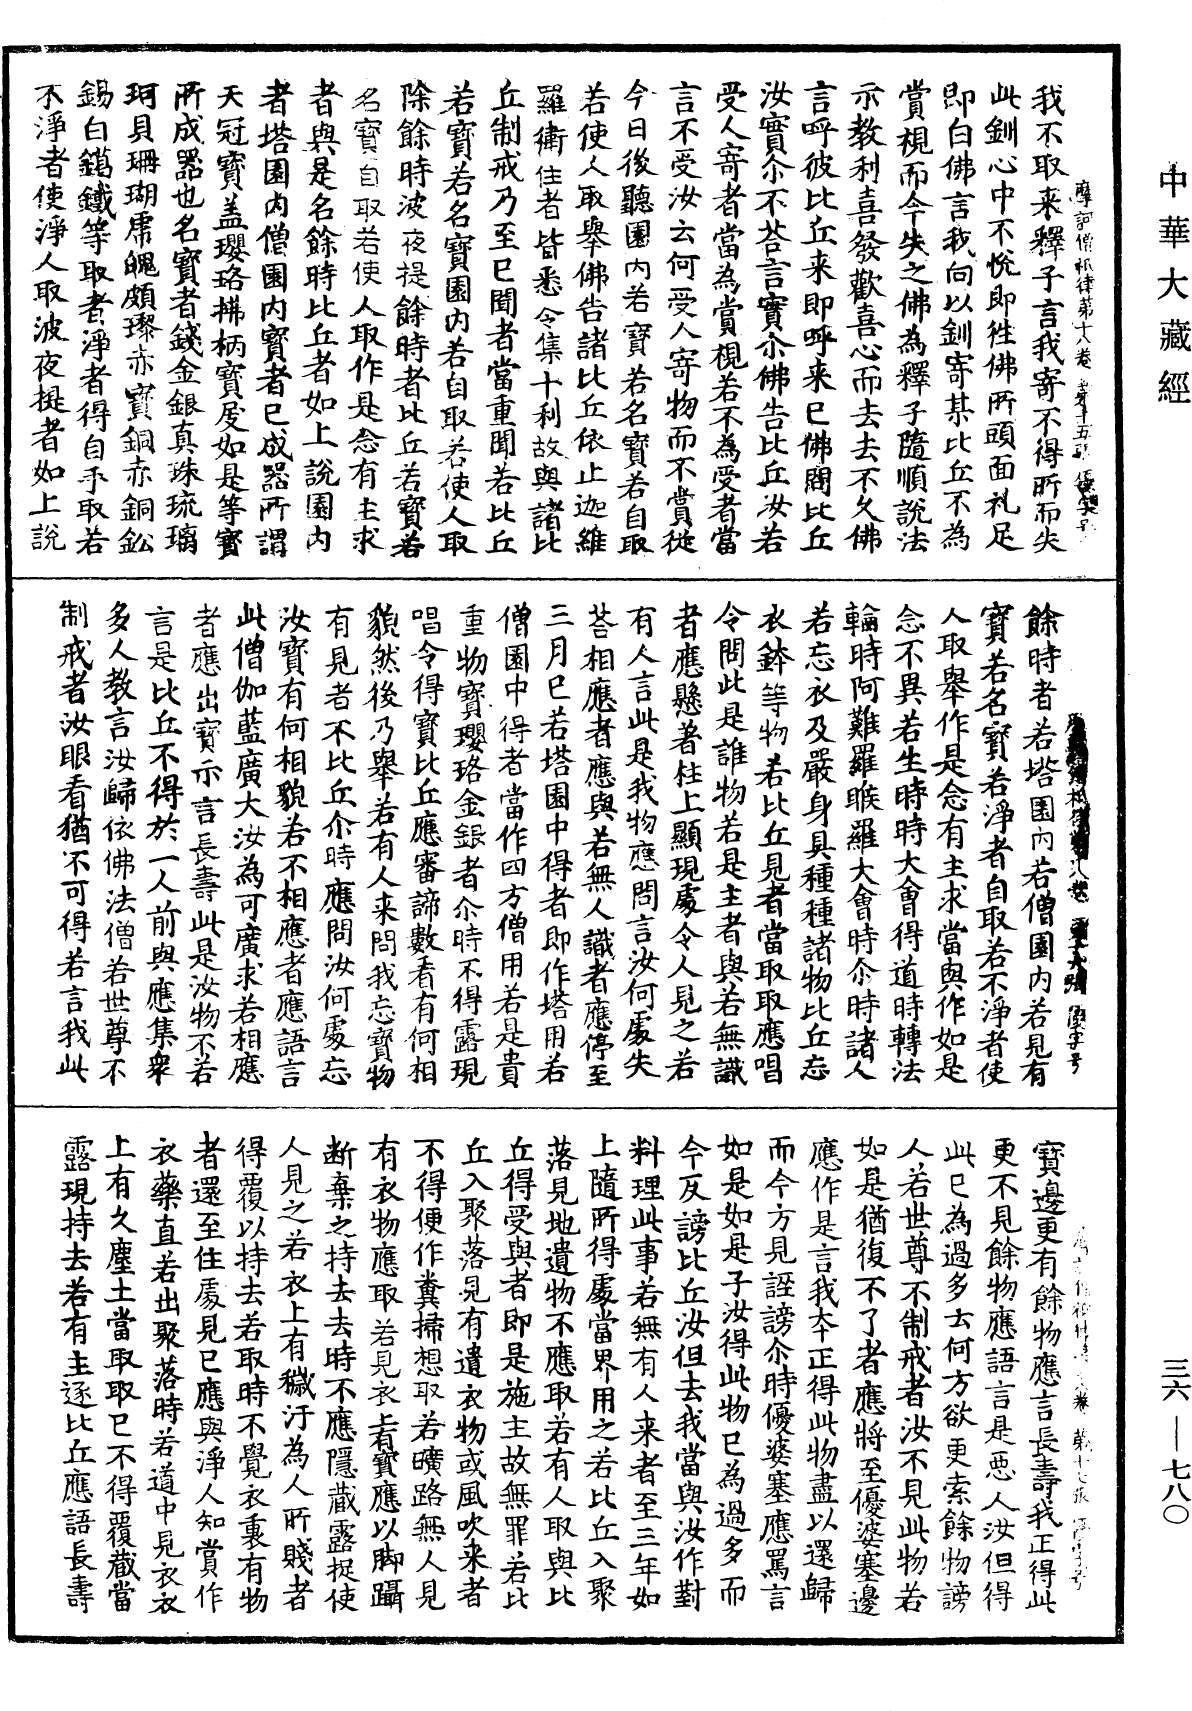 中華大藏經
三六—七八〇
摩訶僧祇律第十八卷 第十五張
我不取来釋子言我寄不得所而失
此釧心中不悅即往佛所頭面礼足
即白佛言我向以釧寄某比丘不為
賞視而今失之佛為釋子隨順說法
示教利喜發歡喜心而去去不久佛
言呼彼比丘来即呼来已佛問比丘
汝實尒不荅言實尒佛告比丘汝若
受人寄者當為賞視若不為受者當
言不受汝云何受人寄物而不賞從
今日後聽園內若寶若名寶若自取
若使人取舉佛告諸比丘依止迦維
羅衛住者皆悉令集十利故與諸比
丘制戒乃至已聞者當重聞若比丘
若寶若名寶園內若自取若使人取
除餘時波夜提餘時者比丘若寶若
名寶自取若使人取作是念有主求
者與是名餘時比丘者如上說園內
者塔園內僧園內寶者已成器所謂
天冠寶盖瓔珞拂柄寶屐如是等寶
所成器也名寶者錢金銀真珠琉璃
珂貝珊瑚虎魄頗瓈赤寶銅赤銅鈆
錫白鑞鐵等取者淨者得自手取若
不淨者使淨人取波夜提者如上說
餘時者若塔園內若僧園內若見有
寶若名寶若淨者自取若不淨者使
人取舉作是念有主求當與作如是
念不異若生時時大會得道時轉法
輪時阿難羅睺羅大會時尒時諸人
若忘衣及嚴身具種種諸物比丘忘
衣鉢等物若比丘見者當取取應唱
令問此是誰物若是主者與若無識
者應懸著柱上顯現處令人見之若
有人言此是我物應問言汝何處失
荅相應者應與若無人識者應停至
三月已若塔園中得者即作塔用若
僧園中得者當作四方僧用若是貴
重物寶瓔珞金銀者尒時不得露現
唱令得寶比丘應審諦數看有何相
貌然後乃舉若有人来問我忘寶物
有見者不比丘尒時應問汝何處忘
汝寶有何相貌若不相應者應語言
此僧伽藍廣大汝為可廣求若相應
者應出寶示言長壽此是汝物不若
言是比丘不得於一人前與應集衆
多人教言汝歸依佛法僧若世尊不
制戒者汝眼看猶不可得若言我此
寶邊更有餘物應言長壽我正得此
更不見餘物應語言是惡人汝但得
此已為過多去何方欲更索餘物謗
人若世尊不制戒者汝不見此物若
如是猶復不了者應將至優婆塞邊
應作是言我夲正得此物盡以還歸
而今方見誣謗尒時優婆塞應罵言
如是如是子汝得此物已為過多而
今反謗比丘汝但去我當與汝作對
料理此事若無有人来者至三年如
上隨所得處當界用之若比丘入聚
落見地遺物不應取若有人取與比
丘得受與者即是施主故無罪若比
丘入聚落見有遺衣物或風吹来者
不得便作糞掃想取若曠路無人見
有衣物應取若見衣上有寶應以脚躡
断棄之持去去時不應隱藏露捉使
人見之若衣上有穢汙為人所賤者
得覆以持去若取時不覺衣裏有物
者還至住處見已應與淨人知賞作
衣藥直若出聚落時若道中見衣衣
上有久塵土當取取已不得覆藏當
露現持去若有主逐比丘應語長壽